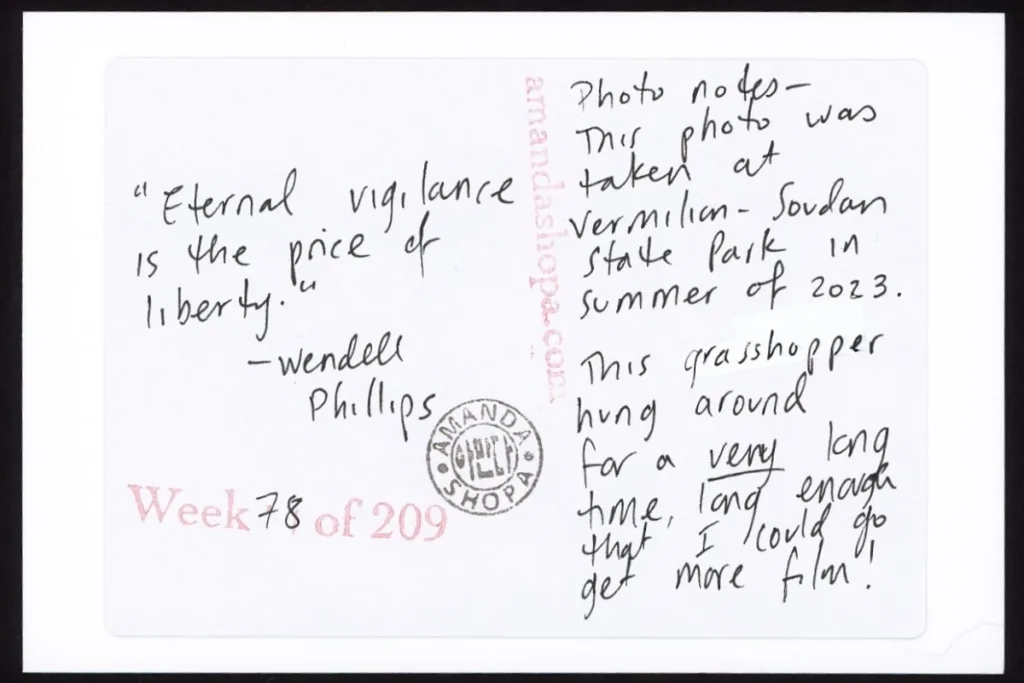 "Eternal vigilance
is the price of
liberty."
-Wendell
Phillips
AMANDA
SHOPA
Week 78 of 209
amandashopa.com
Photo notes-
This photo was
taken at
Vermilion-Soudan
State Park in
summer of 2023.
This grasshopper
hung around
for a very long
time, long enough
that I could go
get more film!